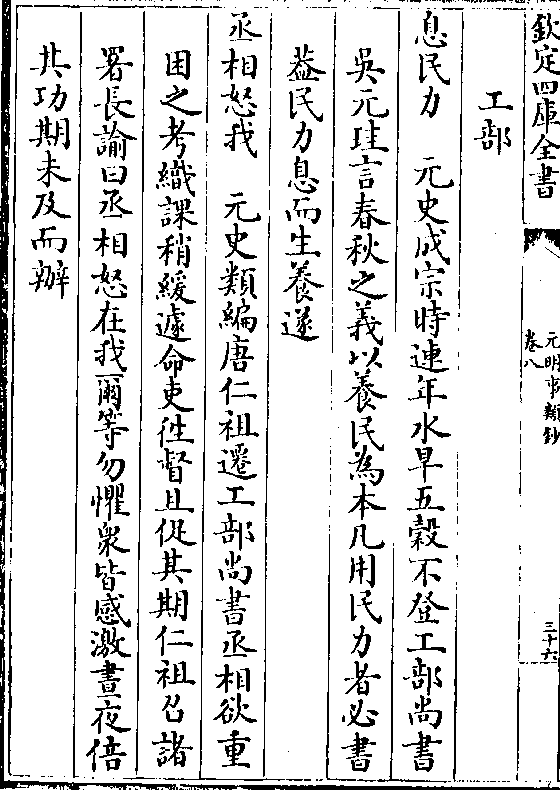 欽定四庫全書
元明事類鈔
卷八
三十六
工部
息民力　元史成宗時連年水旱五穀不登工部尚書
吳元珪言春秋之義以養民為本凡用民力者必書
葢民力息而生養遂
丞相怒我　元史類編唐仁祖遷工部尚書丞相欲重
困之考織課稍緩遽命吏徃督且促其期仁祖召諸
署長諭曰丞相怒在我爾等勿懼衆皆感激晝夜倍
其功期未及而辦